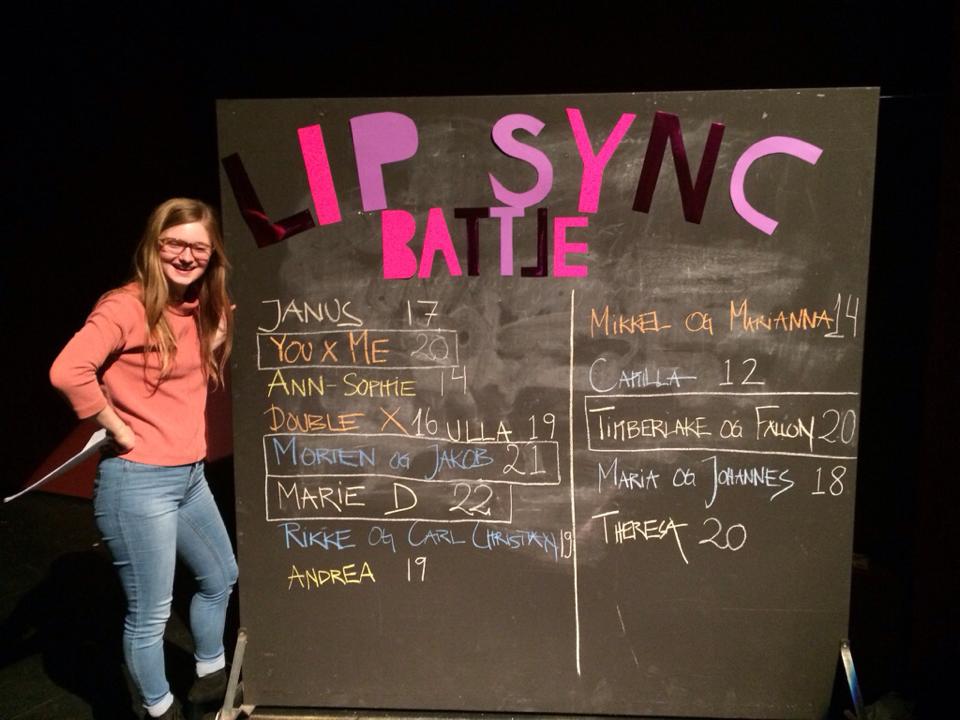 LIP SYNC
BATTLE
JANUS 17
YOU X ME 20
ANN-SOPHIE 14
DOUBLE X 16 ULLA 19
MORTEN OG JAKOB 21
MARIE D 22
RIKKE OG CARL CHRISTIAN 19
ANDREA 19
MIKKEL OG MARIANNA 14
CAMILLA 12
TIMBERLAKE OG FALLON 20
MARIA OG JOHANNES 18
THERESA 20